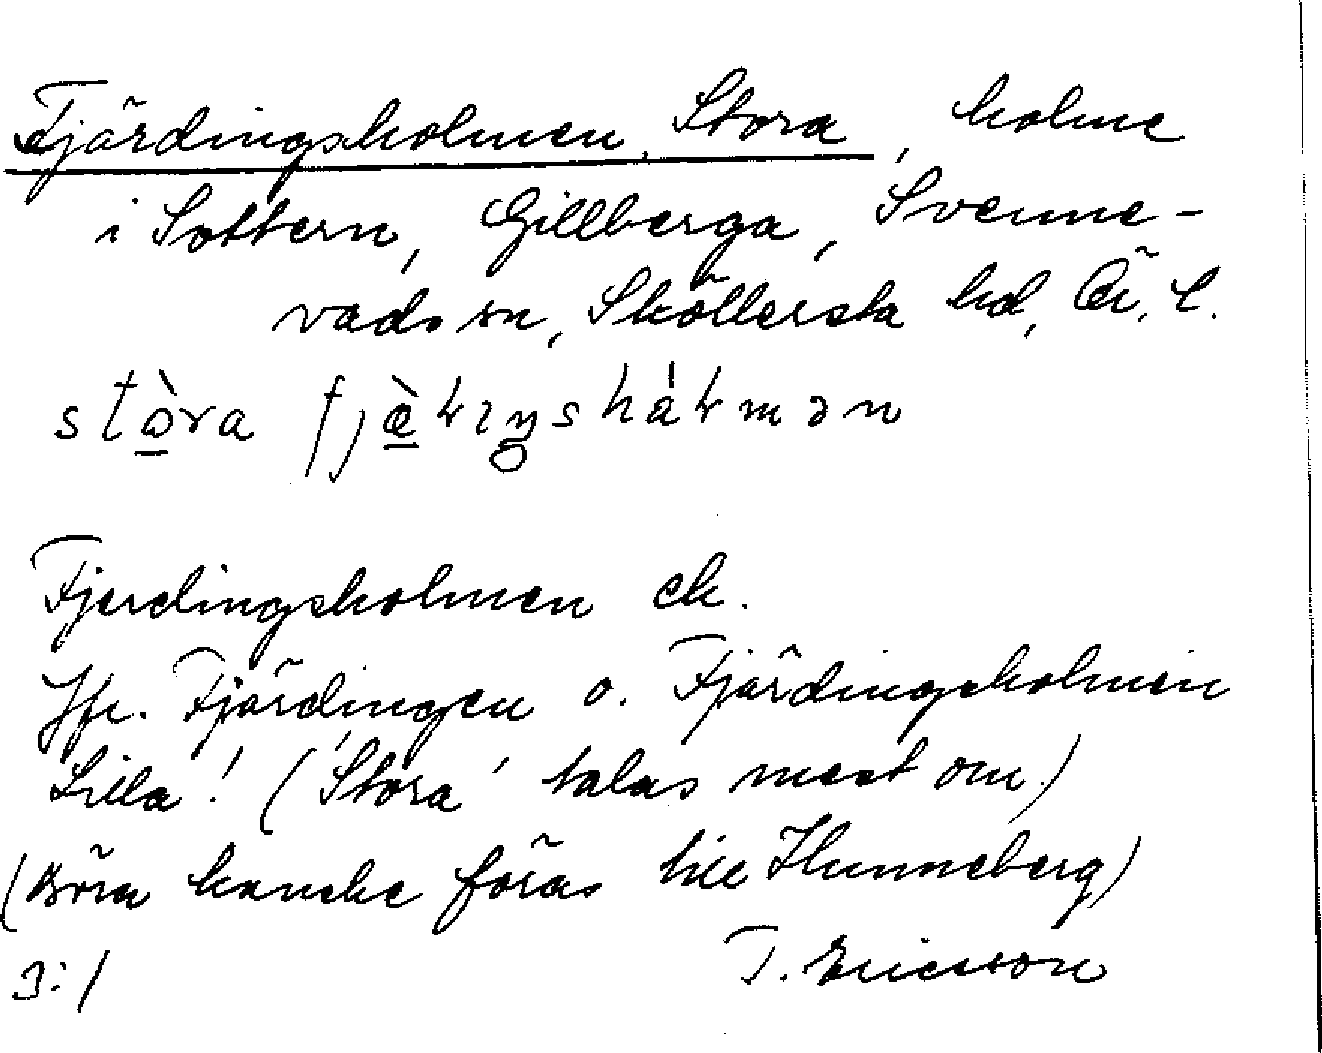 Fjärdingsholmen, Stora, holme
i Sottern, Gillberga, Svenne-
vads sn, Sköllersta hd, Ör. l.
stò̠ra fjæ̠̀ɽɪŋsháɽmən
Fjerdingsholmen ek.
Jfr. Fjärdingen o. Fjärdingsholmen
Lilla! (´Stora´ talas mest om)
(Böra kanske föras till Hunneberg)
3:/ T. Ericsson